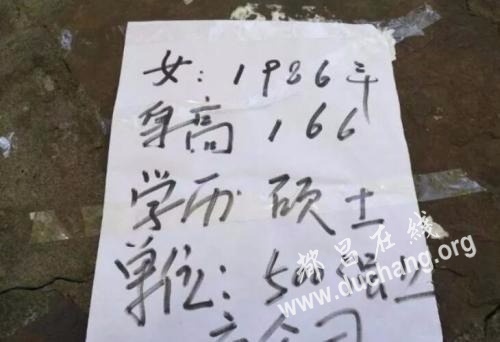 女: 1986年
身高 166
学历 硕士
单位: 500强上
都昌在线
www.duchang.org